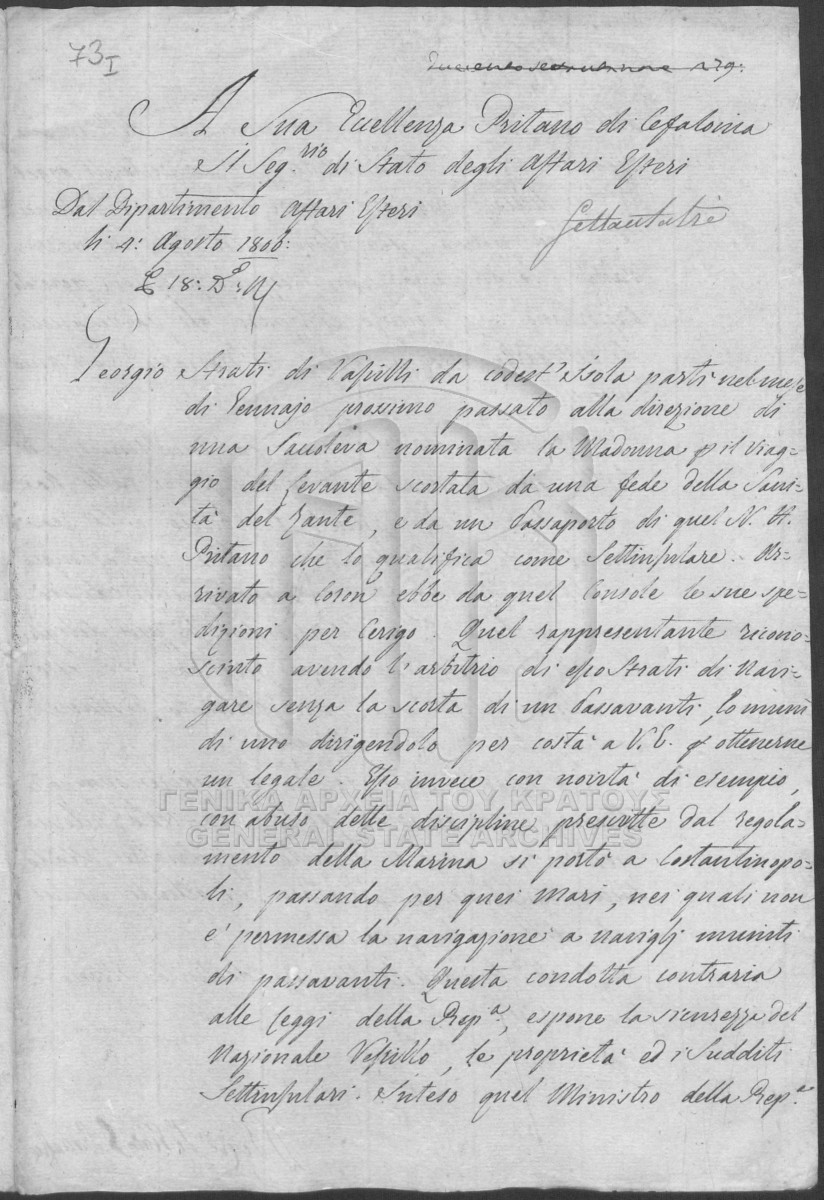 73 I
279:
A Sua Eccellenza Pritano di Cefalonia
Il Seg.rio di Stato degli Affari Esteri
Dal Dipartimento Affari Esteri
li 4: Agosto 1806:
Settantatre
Georgio Strati di Vassilli da codest'Isola partì nel mese
di Gennajo prossimo passato alla direzione di
una Sacoleva nominata la Madonna p il viag=
gio del Levante scortata da una fede della Sani=
tà del Zante, e da un Passaporto di quel N. H.
Pritano che lo qualifica come Settinsulare. Ar=
rivato a Coron ebbe da quel Console le sue spe=
dizioni per Cerigo. Quel rappresentante ricono=
sciuto avendo l'arbitrio di esso Strati di Navi=
gare senza la scorta di un Passavanti, lo munì
di uno dirigendolo per costà a V. E. p ottenerne
un legale. Esso invece con novità di esempio,
con abuso delle discipline prescritte dal regola=
mento della Marina si portò a Costantinopo=
li, passando per quei Mari, nei quali non
e' permessa la navigazione a naviglj muniti
di passavanti. Questa condotta contraria
alle Leggi della Rep.a, espone la sicurezza del
Nazionale Vessillo, le proprietà ed i Sudditi
Settinsulari. Inteso quel Ministro della Rep.a
ΓΕΝΙΚΑ ΑΡΧΕΙΑ ΤΟΥ ΚΡΑΤΟΥΣ
GENERAL STATE ARCHIVES